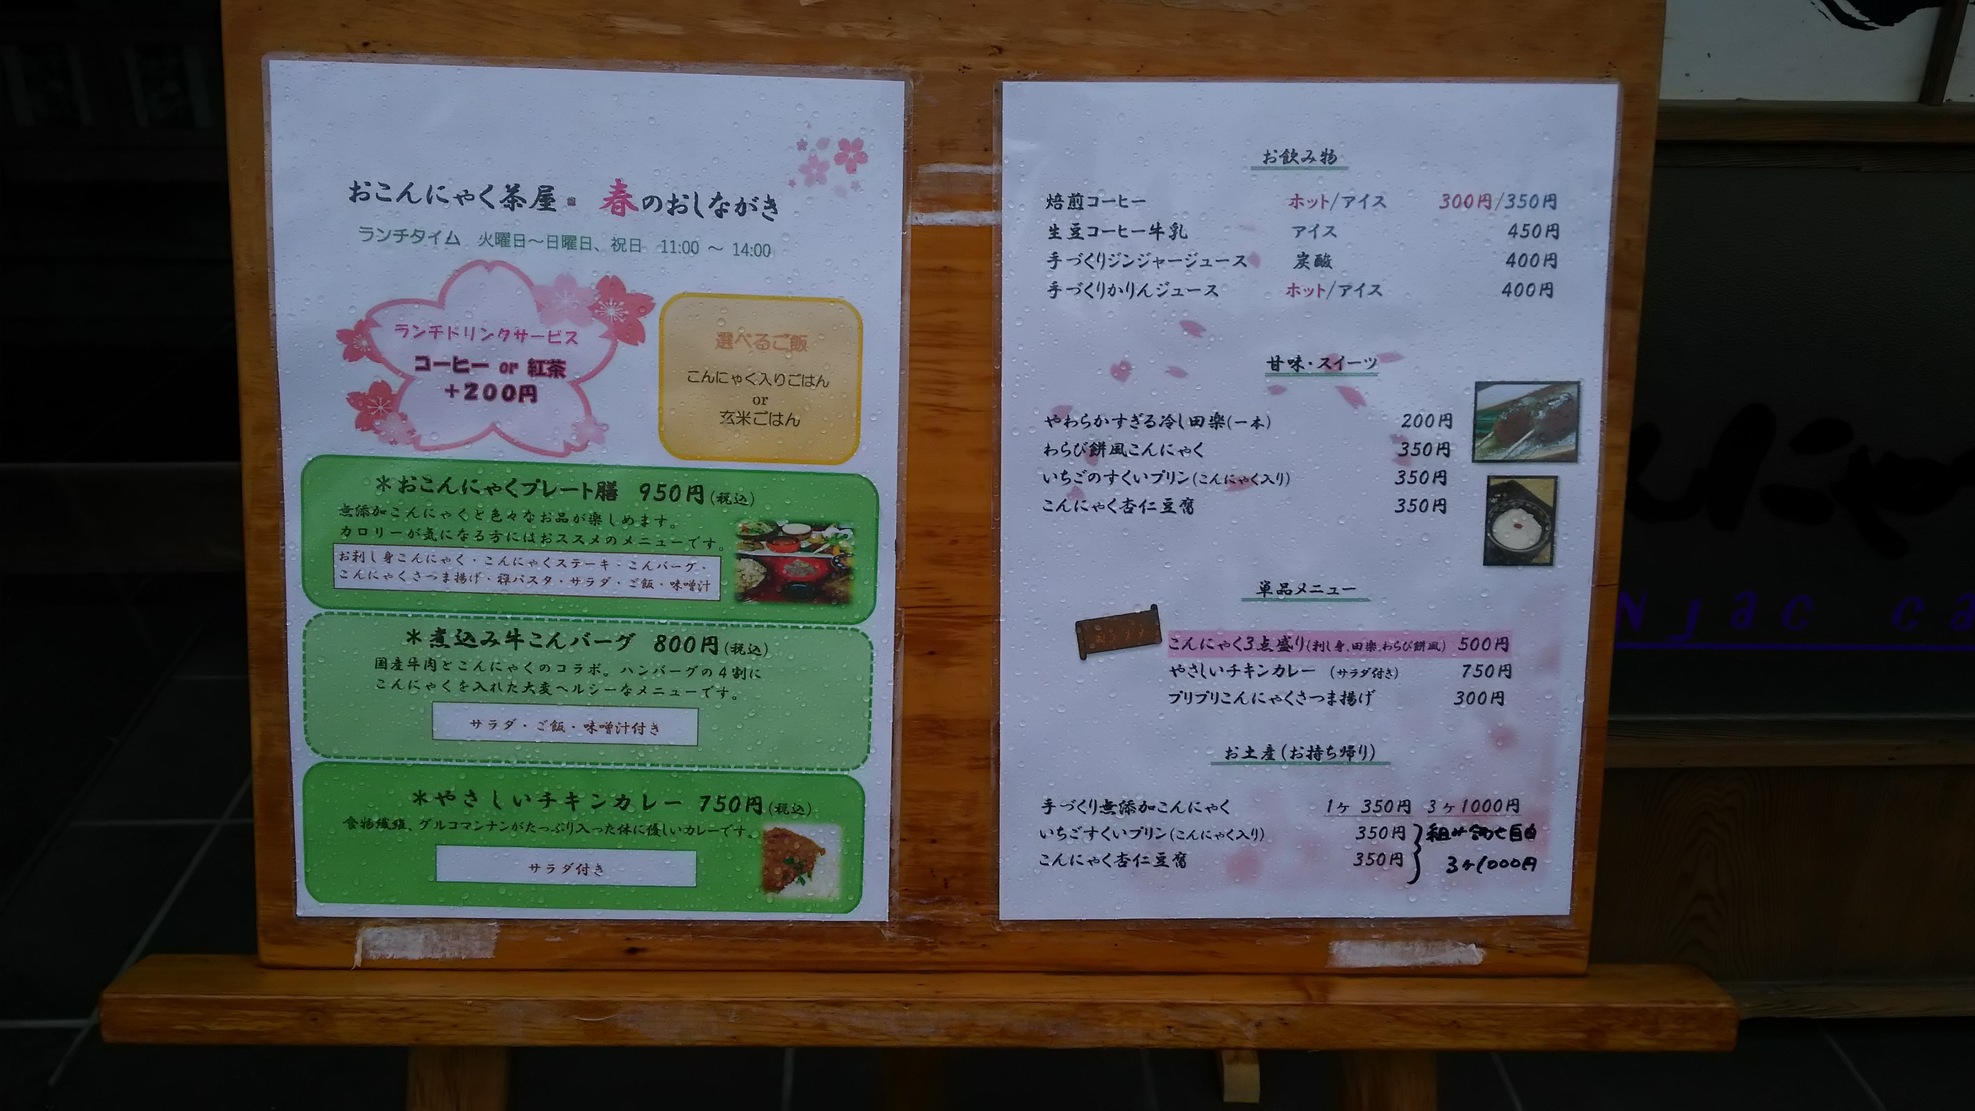 おこんにゃく茶屋 春のおしながき
ランチタイム 火曜日～日曜日、祝日 11:00 ～ 14:00
ランチドリンクサービス
コーヒー or 紅茶
+200円
選べるご飯
こんにゃく入りごはん
or
玄米ごはん
＊おこんにゃくプレート膳 950円(税込)
無添加こんにゃくと色々なお品が楽しめます。
カロリーが気になる方にはおススメのメニューです。
お刺し身こんにゃく・こんにゃくステーキ・こんバーグ・
こんにゃくさつま揚げ・禅パスタ・サラダ・ご飯・味噌汁
＊煮込み牛こんバーグ 800円(税込)
国産牛肉とこんにゃくのコラボ。ハンバーグの4割に
こんにゃくを入れた大変ヘルシーなメニューです。
サラダ・ご飯・味噌汁付き
＊やさしいチキンカレー 750円(税込)
食物繊維、グルコマンナンがたっぷり入った体に優しいカレーです。
サラダ付き
お飲み物
焙煎コーヒー ホット/アイス 300円/350円
生豆コーヒー牛乳 アイス 450円
手づくりジンジャージュース 炭酸 400円
手づくりかりんジュース ホット/アイス 400円
甘味・スイーツ
やわらかすぎる冷し田楽(一本) 200円
わらび餅風こんにゃく 350円
いちごのすくいプリン(こんにゃく入り) 350円
こんにゃく杏仁豆腐 350円
単品メニュー
こんにゃく3点盛り(刺し身、田楽、わらび餅風) 500円
やさしいチキンカレー (サラダ付き) 750円
プリプリこんにゃくさつま揚げ 300円
お土産(お持ち帰り)
手づくり無添加こんにゃく 1ヶ 350円 3ヶ1000円
いちごすくいプリン(こんにゃく入り) 350円 組み合わせ自由
こんにゃく杏仁豆腐 350円 3ヶ1000円